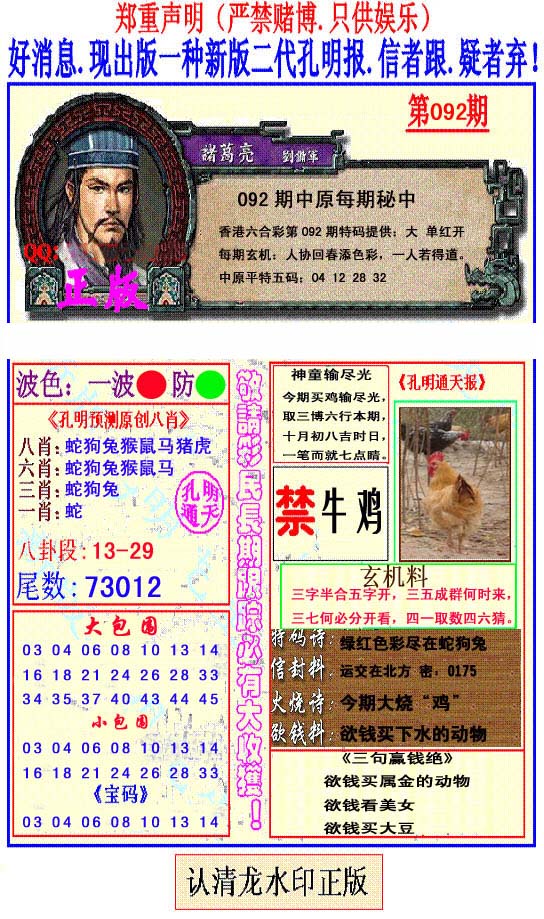 郑重声明（严禁赌博.只供娱乐）
好消息.现出版一种新版二代孔明报.信者跟.疑者弃!
第092期
諸葛亮 劉備軍
092 期中原每期秘中
香港六合彩第 092 期特码提供：大 单红开
每期玄机：人协回春添色彩，一人若得道。
中原平特五码：04 12 28 32
QQ:
正版
波色：一波 防
《孔明预测原创八肖》
八肖:蛇狗兔猴鼠马猪虎
六肖:蛇狗兔猴鼠马
三肖:蛇狗兔
一肖:蛇
孔明
通天
八卦段:13-29
尾数:73012
大包围
03 04 06 08 10 13 14
16 18 21 24 26 28 33
34 35 37 40 43 44 45
小包围
03 04 06 08 10 13 14
16 18 21 24 26 28 33
《宝码》
03 04 06 08 10 13 14
敬請彩民長期跟踪必有大收獲！
神童输尽光
今期买鸡输尽光，
取三博六行本期，
十月初八吉时日，
一笔而就七点晴。
《孔明通天报》
禁牛鸡
玄机料
三字半合五字开，三五成群何时来，
三七何必分开看，四一取数四六猜。
特码诗：绿红色彩尽在蛇狗兔
信封料：运交在北方 密：0175
火烧诗：今期大烧“鸡”
欲钱料：欲钱买下水的动物
《三句赢钱绝》
欲钱买属金的动物
欲钱看美女
欲钱买大豆
认清龙水印正版